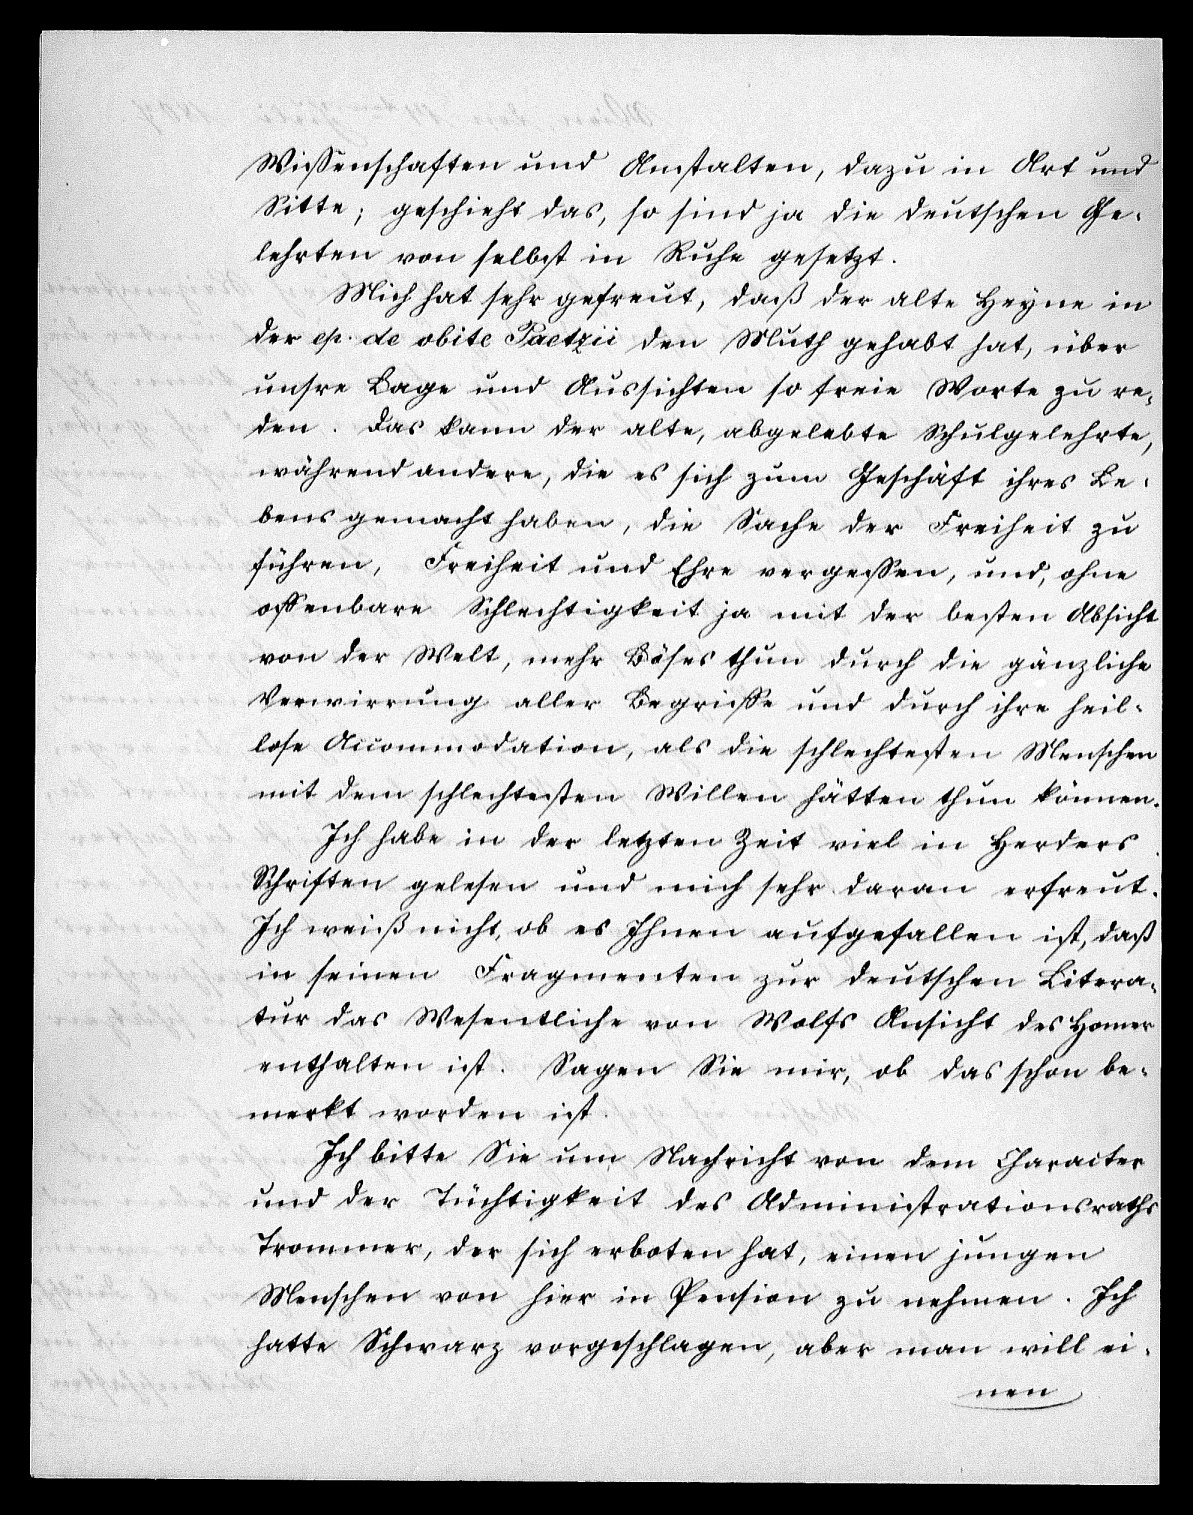 Wissenschaften und Anstalten, dazu in Art und
Sitte; geschieht das, so sind ja die deutschen Ge-
lehrten von selbst in Ruhe gesetzt.
Mich hat sehr gefreut, daß der alte Heyne in
der ep. de obite Paetzii den Muth gehabt hat, über
unsre Lage und Aussichten so freie Worte zu re-
den. Das kann der alte, abgelebte Schulgelehrte,
während andere, die es sich zum Geschäft ihres Le-
bens gemacht haben, die Sache der Freiheit zu
führen, Freiheit und Ehre vergessen, und, ohne
offenbare Schlechtigkeit ja mit der besten Absicht
von der Welt, mehr Böses thun durch die gänzliche
Verwirrung aller Begriffe und durch ihre heil-
lose Accommodation, als die schlechtesten Menschen
mit dem schlechtesten Willen hätten thun können.
Ich habe in der letzten Zeit viel in Herders
Schriften gelesen und mich sehr daran erfreut.
Ich weiß nicht, ob es Ihnen aufgefallen ist, daß
in seinen Fragmenten zur deutschen Litera-
tur das Wesentliche von Wolfs Ansicht des Homer
enthalten ist. Sagen Sie mir, ob das schon be-
merkt worden ist.
Ich bitte Sie um Nachricht von dem Character
und der Tüchtigkeit des Administrationsraths
Trommer, der sich erboten hat, einen jungen
Menschen von hier in Pension zu nehmen. Ich
hatte Schwarz vorgeschlagen, aber man will ei-
nen